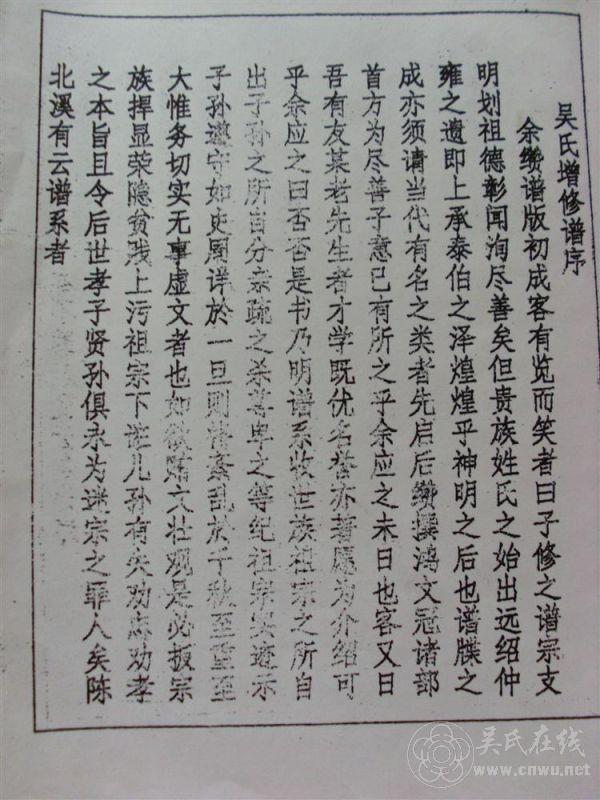 吴氏增修谱序
余缵谱版初成客有览而笑者曰子修之谱宗支
明划祖德彰闻洵尽善矣但贵族姓氏之始出远绍仲
雍之遗即上承泰伯之泽煌煌乎神明之后也谱牒之
成亦须请当代有名之类者先启后缵撰鸿文冠诸部
首方为尽善子意已有所之乎余应之未日也客又日
吾有友某老先生者才学既优名誉亦著愿为介绍可
乎余应之曰否否是书乃明谱系收世族祖宗之所自
出子孙之所自分亲疏之杀尊卑之等纪祖宗实迹示
子孙遵守如史周详於一旦则 紊乱於千秋至重至
大惟务切实无事虚文者也如 大壮观是必扳宗
族捍显荣隐贫贱上污祖宗下诳儿孙有失劝忠劝孝
之本旨且令后世孝子贤孙俱永为迷宗之罪人矣陈
北溪有云谱系者
吴氏在线
www.cnwu.net